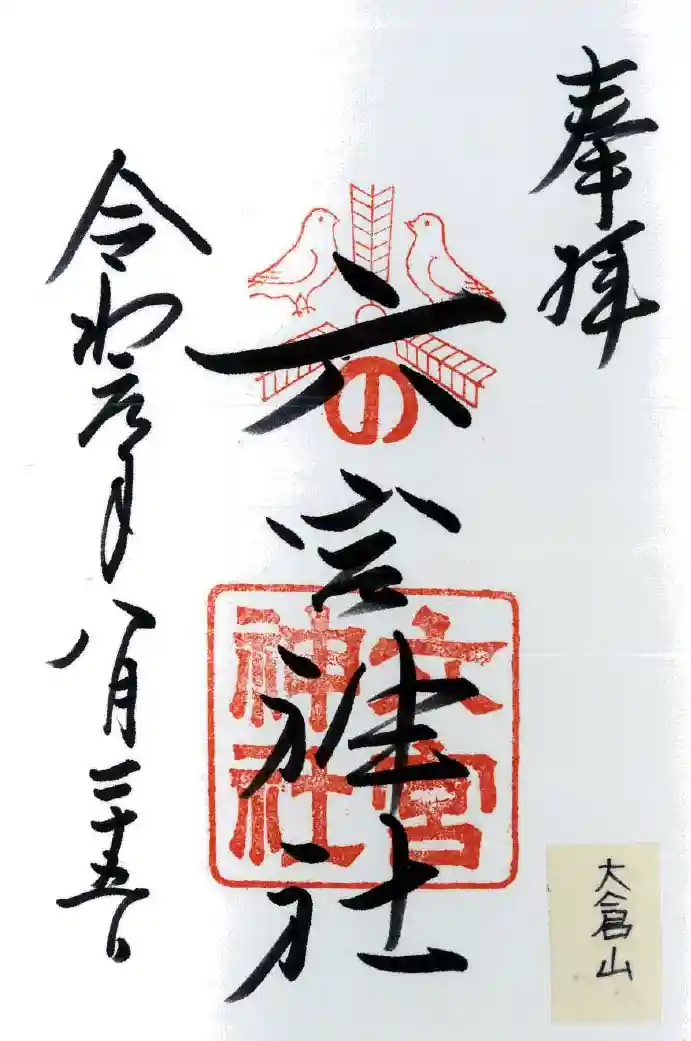 奉拝
大倉山
六宮神社
の
六宮
神社
令和元年八月二十五日